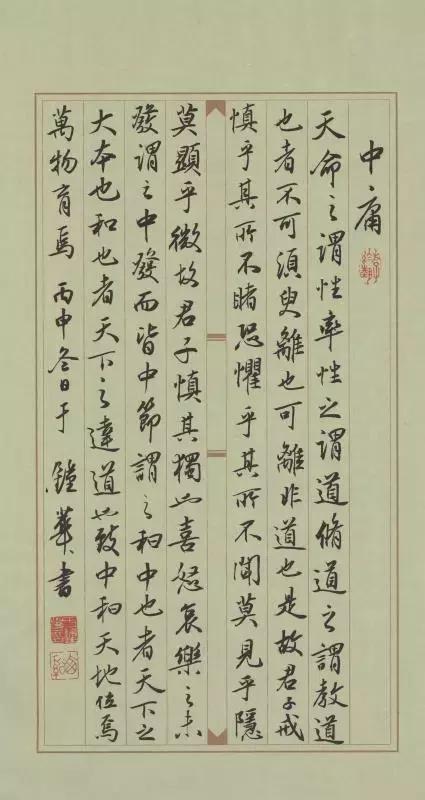 中庸
天命之謂性率性之謂道脩道之謂教道
也者不可須臾離也可離非道也是故君子戒
慎乎其所不睹恐懼乎其所不聞莫見乎隱
莫顯乎微故君子慎其獨也喜怒哀樂之未
發謂之中發而皆中節謂之和中也者天下之
大本也和也者天下之達道也致中和天地位焉
萬物育焉 丙申冬日于 鐘華書